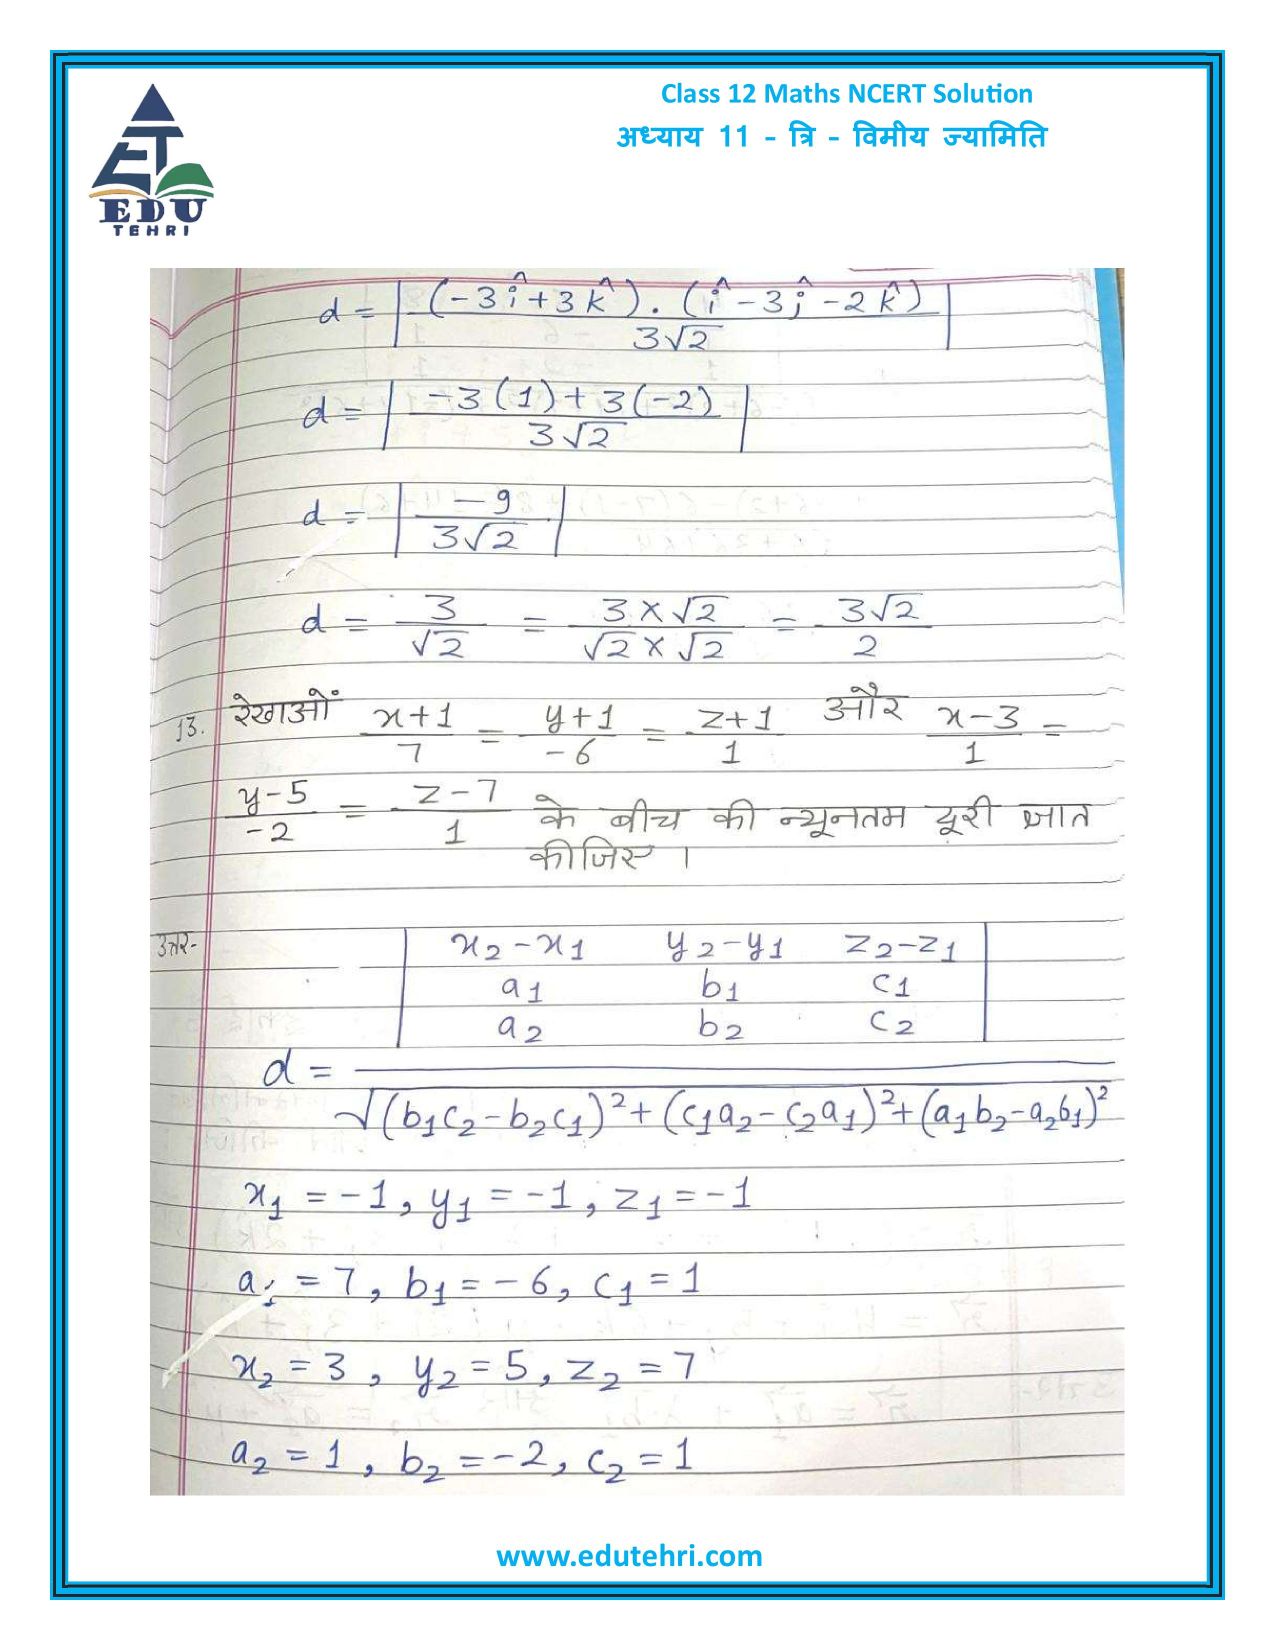 Class 12 Maths NCERT Solution
अध्याय 11 - त्रि - विमीय ज्यामिति
EDU
TEHRI
d = |(-3î + 3k̂) . (î - 3ĵ - 2k̂) / 3√2|
d = |-3(1) + 3(-2) / 3√2|
d = |-9 / 3√2|
d = 3/√2 = 3×√2 / √2×√2 = 3√2/2
13. रेखाओं x+1/7 = y+1/-6 = z+1/1 और x-3/1 =
y-5/-2 = z-7/1 के बीच की न्यूनतम दूरी ज्ञात
कीजिए ।
उत्तर-
| x₂-x₁ y₂-y₁ z₂-z₁ |
| a₁ b₁ c₁ |
| a₂ b₂ c₂ |
d = ———
√(b₁c₂-b₂c₁)² + (c₁a₂-c₂a₁)² + (a₁b₂-a₂b₁)²
x₁ = -1, y₁ = -1, z₁ = -1
a₁ = 7, b₁ = -6, c₁ = 1
x₂ = 3, y₂ = 5, z₂ = 7
a₂ = 1, b₂ = -2, c₂ = 1
www.edutehri.com